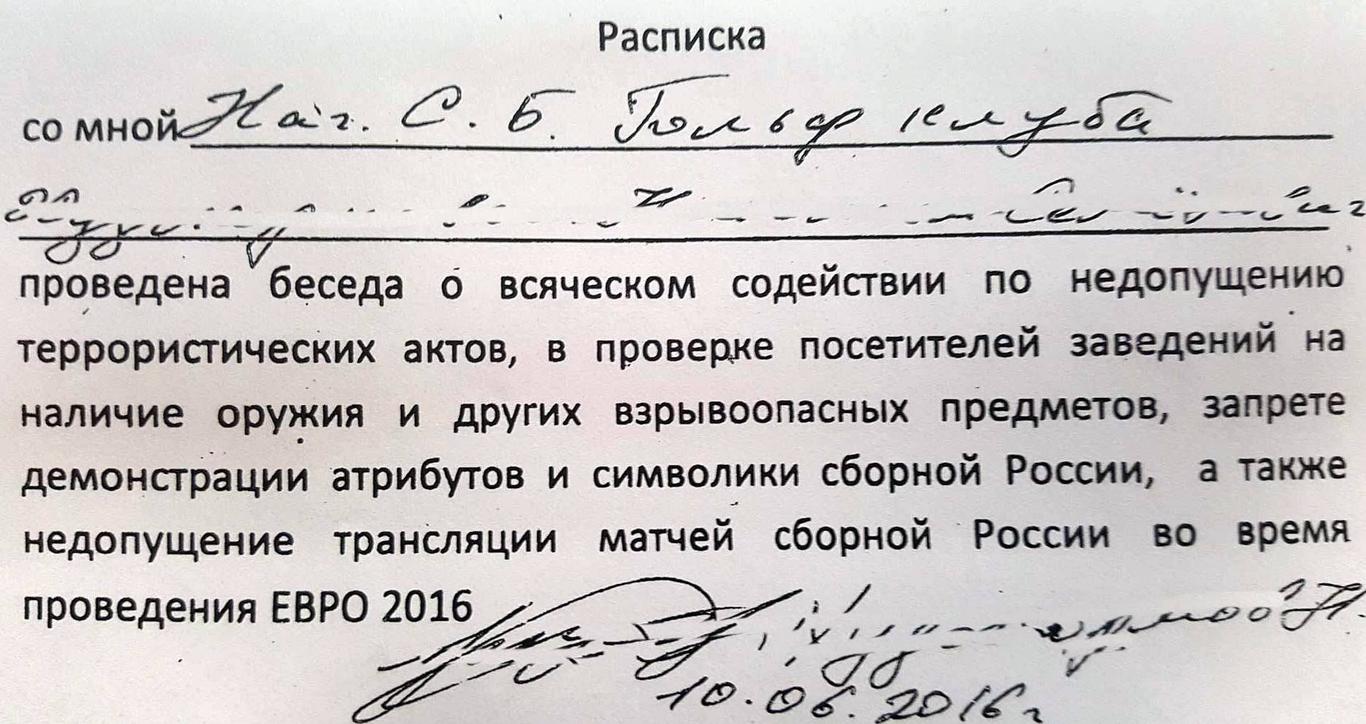 Расписка
со мной Нач. С. Б. Гольф клуба
проведена беседа о всяческом содействии по недопущению
террористических актов, в проверке посетителей заведений на
наличие оружия и других взрывоопасных предметов, запрете
демонстрации атрибутов и символики сборной России, а также
недопущение трансляции матчей сборной России во время
проведения ЕВРО 2016
10.06.2016г